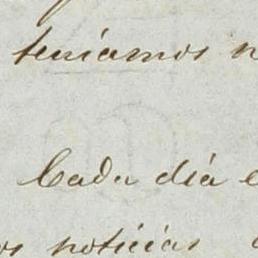 teníamos
Cada día
noticias